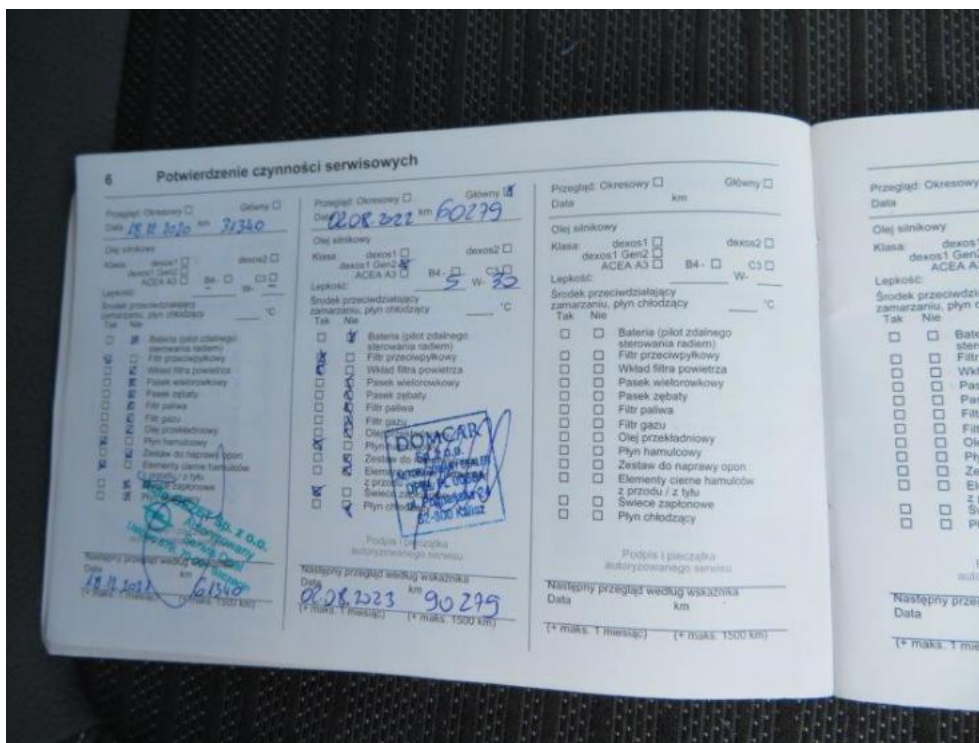 6 Potwierdzenie czynności serwisowych
Przegląd: Okresowy Główny
Data 18.12.2020 km 31340
Olej silnikowy
Klasa: dexos1 dexos2
dexos1 Gen2
ACEA A3 B4 - C3
Lepkość: W-
Środek przeciwdziałający
zamarzaniu, płyn chłodzący °C
Tak Nie
Bateria (pilot zdalnego
sterowania radiem)
Filtr przeciwpyłkowy
Wkład filtra powietrza
Pasek wielorowkowy
Pasek zębaty
Filtr paliwa
Filtr gazu
Olej przekładniowy
Płyn hamulcowy
Zestaw do naprawy opon
Elementy cierne hamulców
z przodu / z tyłu
Świece zapłonowe
Sp. z o.o.
Autoryzowany
Serwis Opel
Następny przegląd według wskaźnika
Data km
61340
(+ maks. 1 miesiąc) (+ maks. 1500 km)
Przegląd: Okresowy Główny
Data 02.08.2022 km 60279
Olej silnikowy
Klasa: dexos1 dexos2
dexos1 Gen2
ACEA A3 B4 - C3
Lepkość: 5 W- 30
Środek przeciwdziałający
zamarzaniu, płyn chłodzący °C
Tak Nie
Bateria (pilot zdalnego
sterowania radiem)
Filtr przeciwpyłkowy
Wkład filtra powietrza
Pasek wielorowkowy
Pasek zębaty
Filtr paliwa
Filtr gazu
Płyn
Zestaw do
z przodu
Świece
Płyn
DOMCAR
Sp. z o.o.
62-800 Kalisz
Podpis i pieczątka
autoryzowanego serwisu
Następny przegląd według wskaźnika
Data km
02.08.2023 90279
(+ maks. 1 miesiąc) (+ maks. 1500 km)
Przegląd: Okresowy Główny
Data km
Olej silnikowy
Klasa: dexos1 dexos2
dexos1 Gen2
ACEA A3 B4 - C3
Lepkość: W-
Środek przeciwdziałający
zamarzaniu, płyn chłodzący °C
Tak Nie
Bateria (pilot zdalnego
sterowania radiem)
Filtr przeciwpyłkowy
Wkład filtra powietrza
Pasek wielorowkowy
Pasek zębaty
Filtr paliwa
Filtr gazu
Olej przekładniowy
Płyn hamulcowy
Zestaw do naprawy opon
Elementy cierne hamulców
z przodu / z tyłu
Świece zapłonowe
Płyn chłodzący
Podpis i pieczątka
autoryzowanego serwisu
Następny przegląd według wskaźnika
Data km
(+ maks. 1 miesiąc) (+ maks. 1500 km)
Przegląd: Okresowy
Data
Olej silnikowy
Klasa: dexos1
dexos1 Gen2
ACEA A3
Lepkość:
Środek przeciwdział
zamarzaniu, płyn c
Tak Nie
Bate
ster
Filtr
Wkł
Pas
Pas
Filt
Filt
Ole
Pły
Ze
Ele
z
Św
Pł
Następny przeg
Data
(+ maks. 1 mie